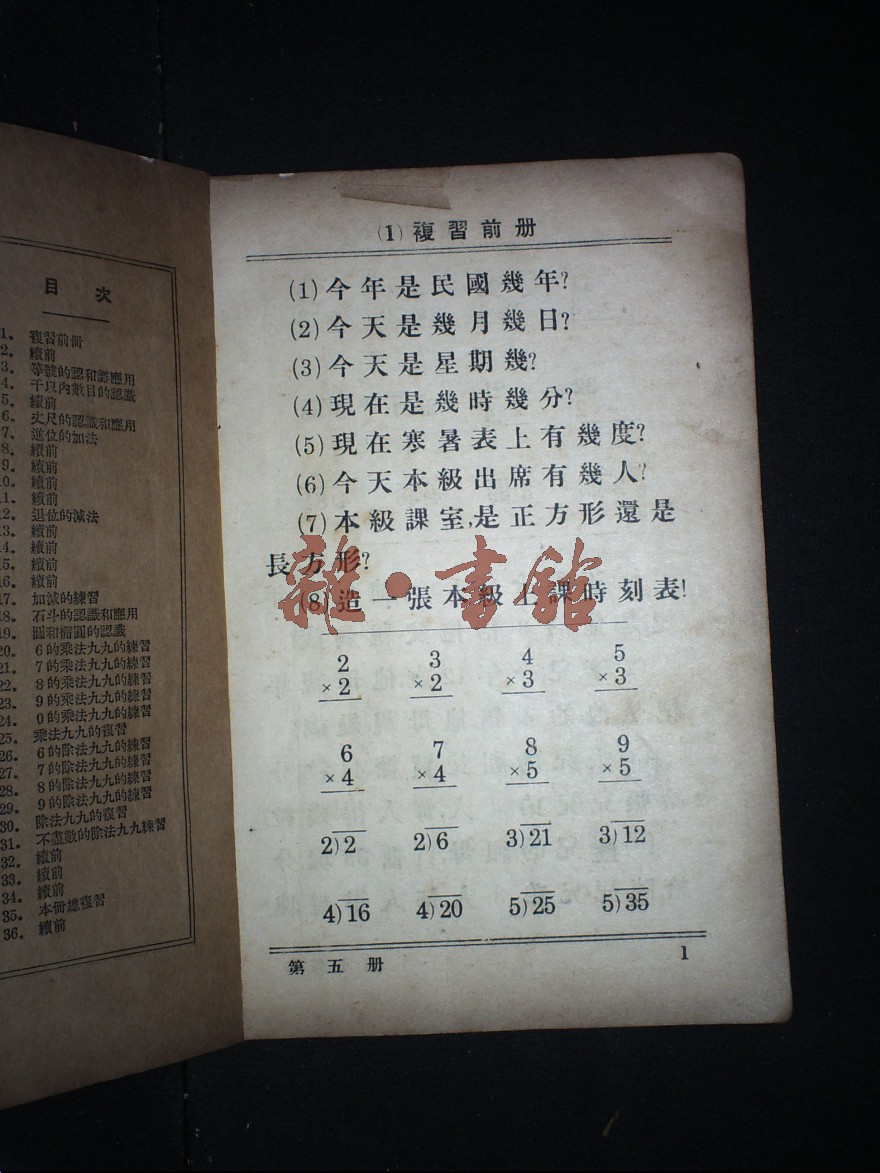 目 次
1. 複習前冊
2. 續前
3. 等號的認和識應用
4. 千以內數目的認識
5. 續前
6. 丈尺的認識和應用
7. 進位的加法
8. 續前
9. 續前
10. 續前
11. 續前
12. 退位的減法
13. 續前
14. 續前
15. 續前
16. 續前
17. 加減的練習
18. 石斗的認識和應用
19. 圓和橢圓的認識
20. 6的乘法九九的練習
21. 7的乘法九九的練習
22. 8的乘法九九的練習
23. 9的乘法九九的練習
24. 0的乘法九九的練習
25. 乘法九九的復習
26. 6的除法九九的練習
27. 7的除法九九的練習
28. 8的除法九九的練習
29. 9的除法九九的練習
30. 除法九九的復習
31. 不盡數的除法九九練習
32. 續前
33. 續前
34. 續前
35. 本冊總復習
36. 續前
(1) 複習前册
(1) 今年是民國幾年?
(2) 今天是幾月幾日?
(3) 今天是星期幾?
(4) 現在是幾時幾分?
(5) 現在寒暑表上有幾度?
(6) 今天本級出席有幾人?
(7) 本級課室,是正方形還是
長方形?
(8) 造一張本級上課時刻表!
雜·書館
2 3 4 5
×2 ×2 ×3 ×3
6 7 8 9
×4 ×4 ×5 ×5
2)2 2)6 3)21 3)12
4)16 4)20 5)25 5)35
第五册 1